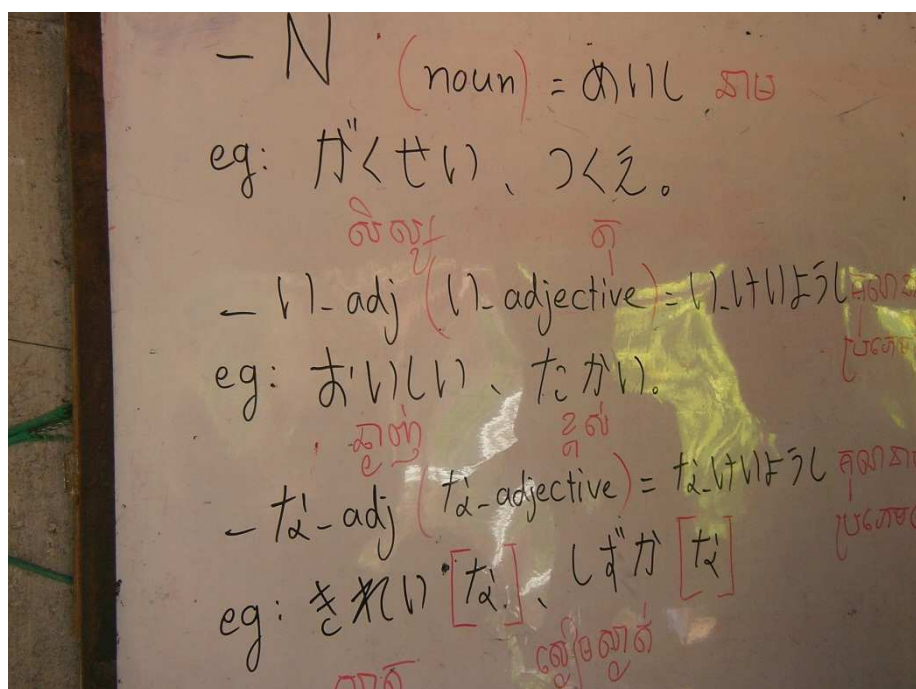 - N (noun) = めいし នាម
eg: がくせい、つくえ。
សិស្ស តុ
- い-adj (い-adjective) = い-けいようし គុណនាម
ប្រភេទ
eg: おいしい、たかい。
ឆ្ងាញ់ ខ្ពស់
- な-adj (な-adjective) = な-けいようし គុណនាម
ប្រភេទ
eg: きれい[な]、しずか[な]
ស្ងៀមស្ងាត់